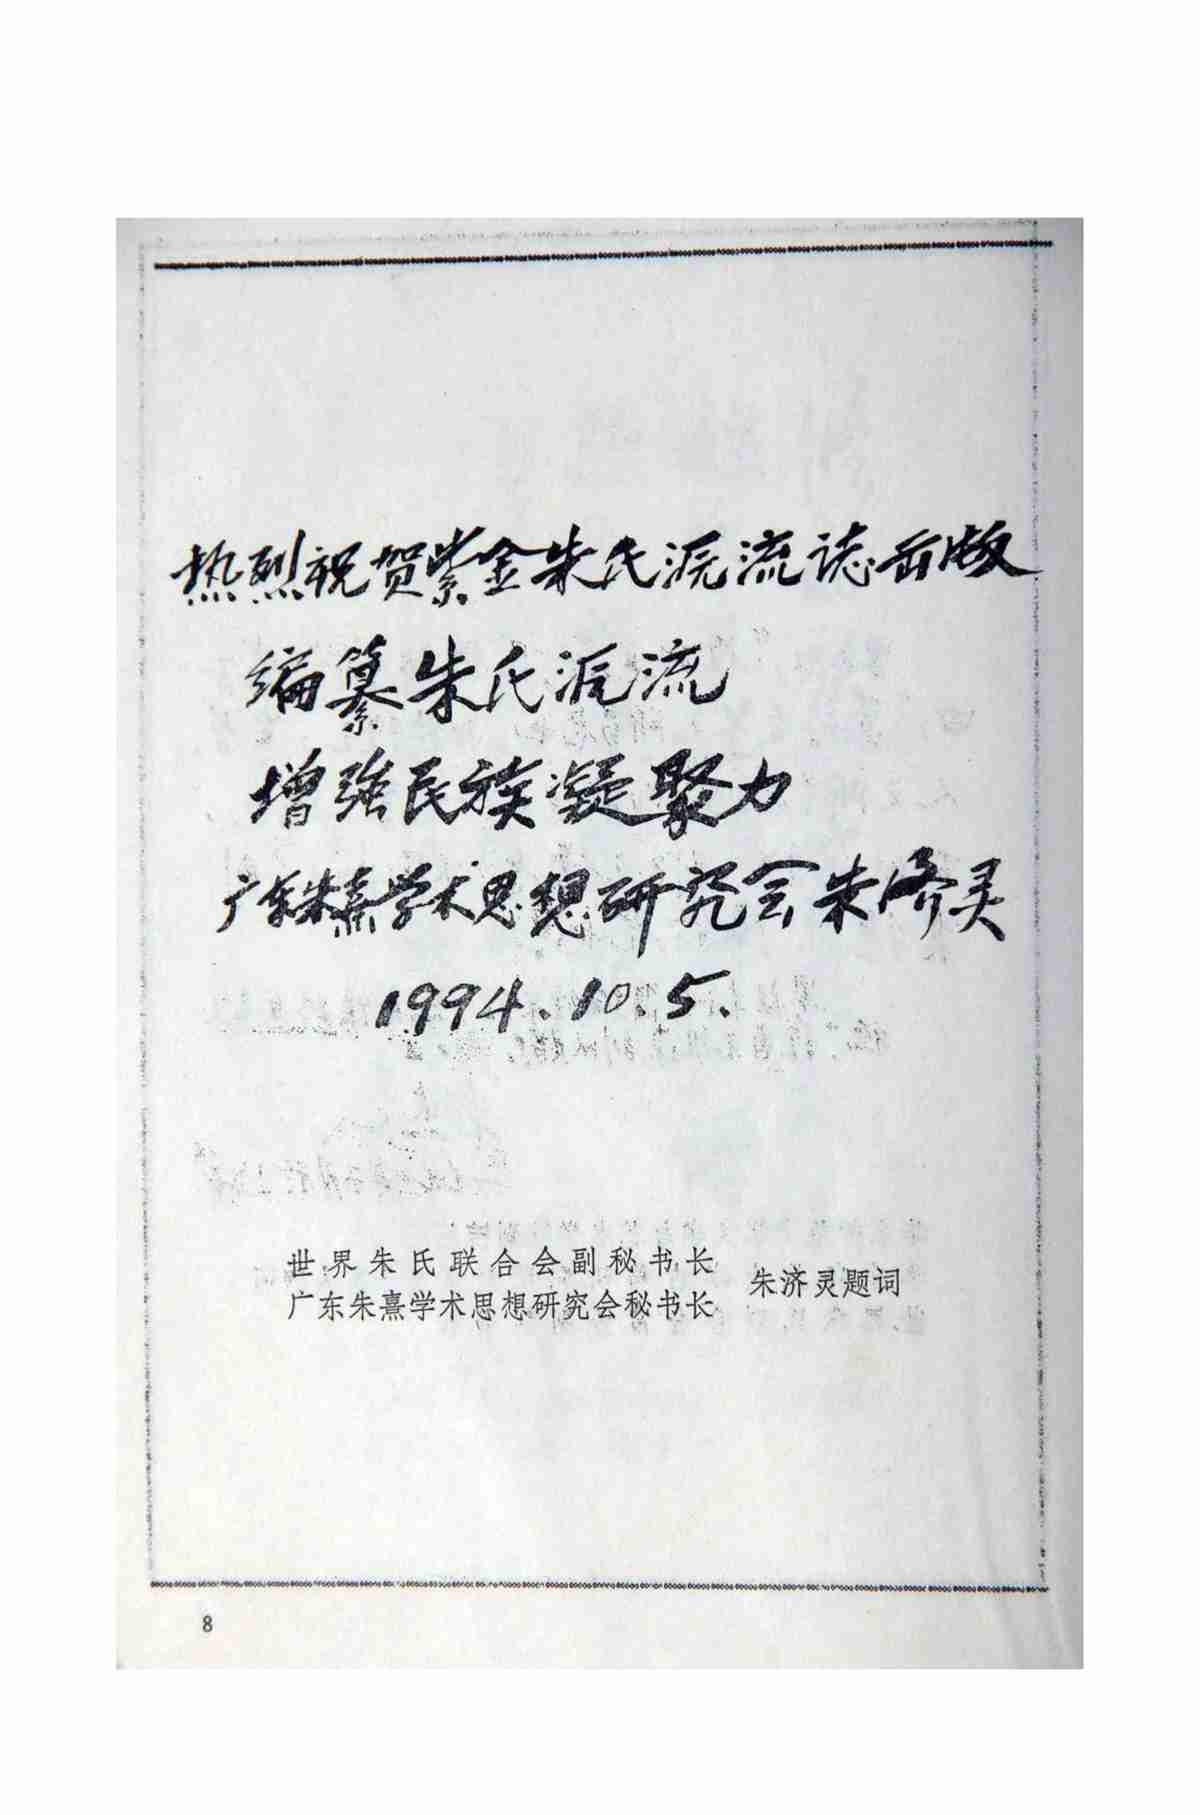 热烈祝贺紫金朱氏派流誌出版
编纂朱氏派流
增强民族凝聚力
广东朱熹学术思想研究会朱济灵
1994.10.5.
世界朱氏联合会副秘书长
广东朱熹学术思想研究会秘书长
朱济灵题词
8